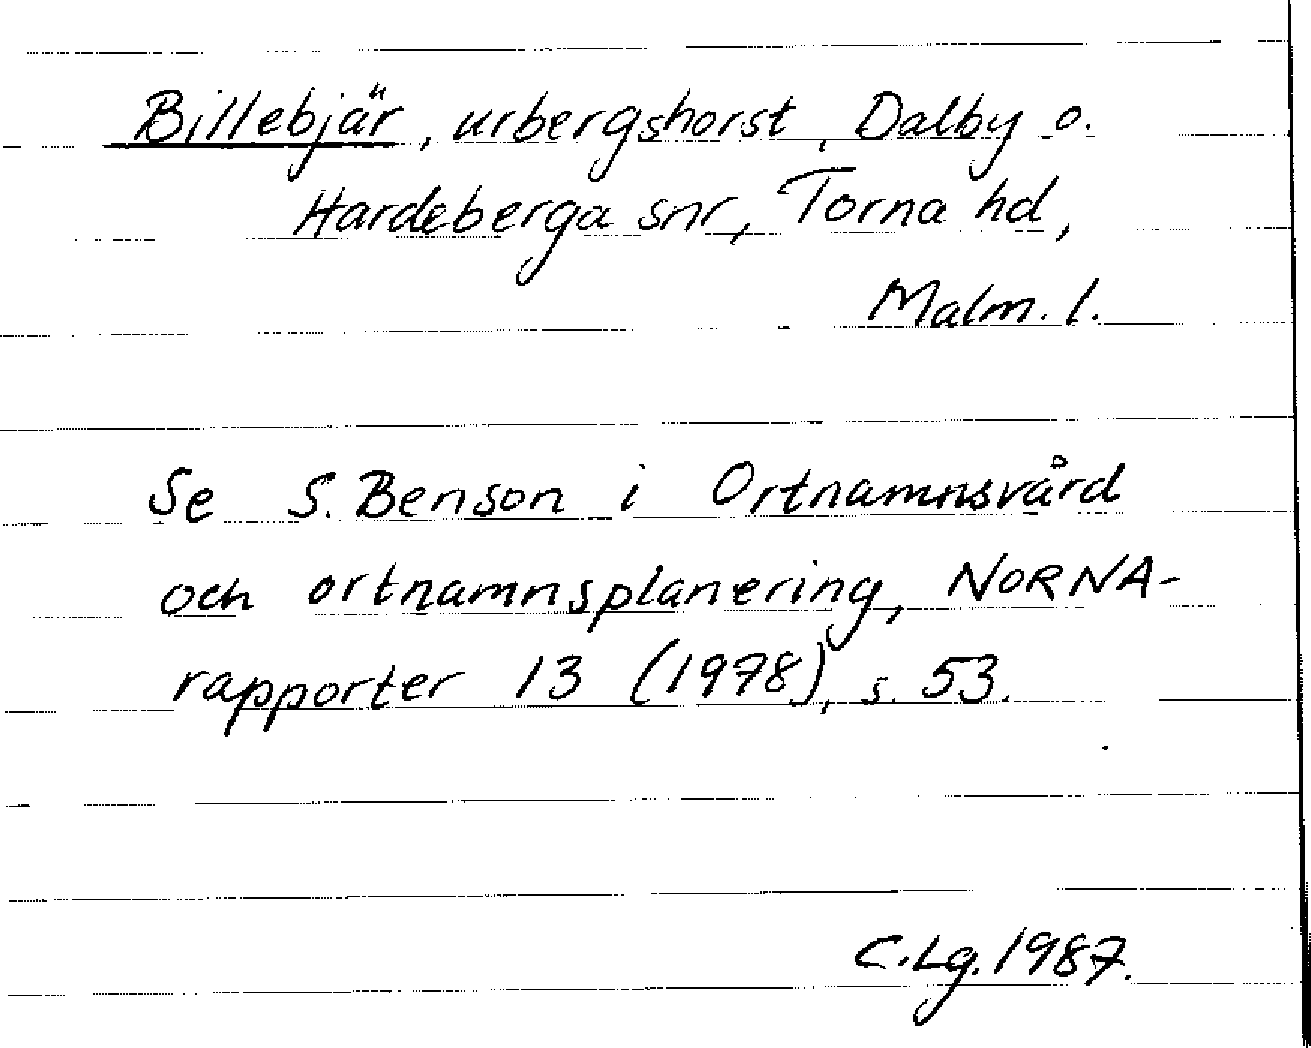 Billebjär, urbergshorst, Dalby o.
Hardeberga snr, Torna hd,
Malm. l.
Se S. Benson i Ortnamnsvård
och ortnamnsplanering, NORNA-
rapporter 13 (1978), s. 53.
C.Lg. 1987.